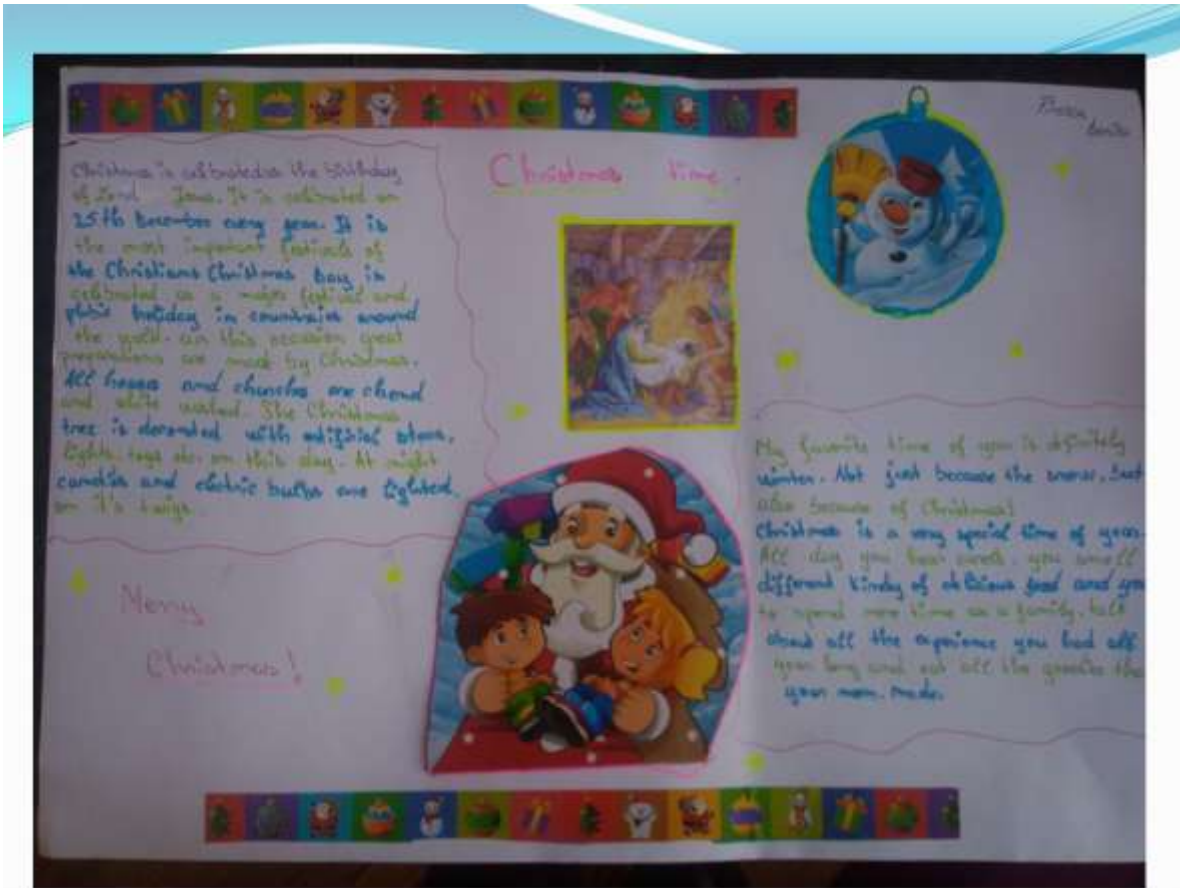 Christmas time.
Christmas is celbrated as the birthday
of Lord Jesus. It is celbrated on
25th December every year. It is
the most important festivals of
the Christians Christmas Day is
celbrated as a major festival and
holiday in countries around
the on this occasion great
preparations are made by Christmas.
All houses and churches are
and white The Christmas
tree is with stars,
lights, toys on this day. At night
candles and electric bulbs are lighted
on it's twigs.
Merry
Christmas!
My favorite time of year is definitely
winter. Not just because the snow, but
also because of Christmas!
Christmas is a very special time of year.
All day you hear you smell
different kinds of delicious food and you
to spend more time as a family, talk
about all the experience you had all
year long and eat all the the
your mom made.